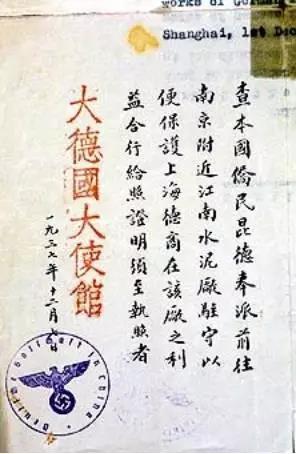 works of
Shanghai, 1st Dec
查本國僑民昆德奉派前往
南京附近江南水泥廠駐守以
便保護上海德商在該廠之利
益合行給照證明須至執照者
大德國大使館
一九三七年十二月七日
Deutsche Botschaft in China